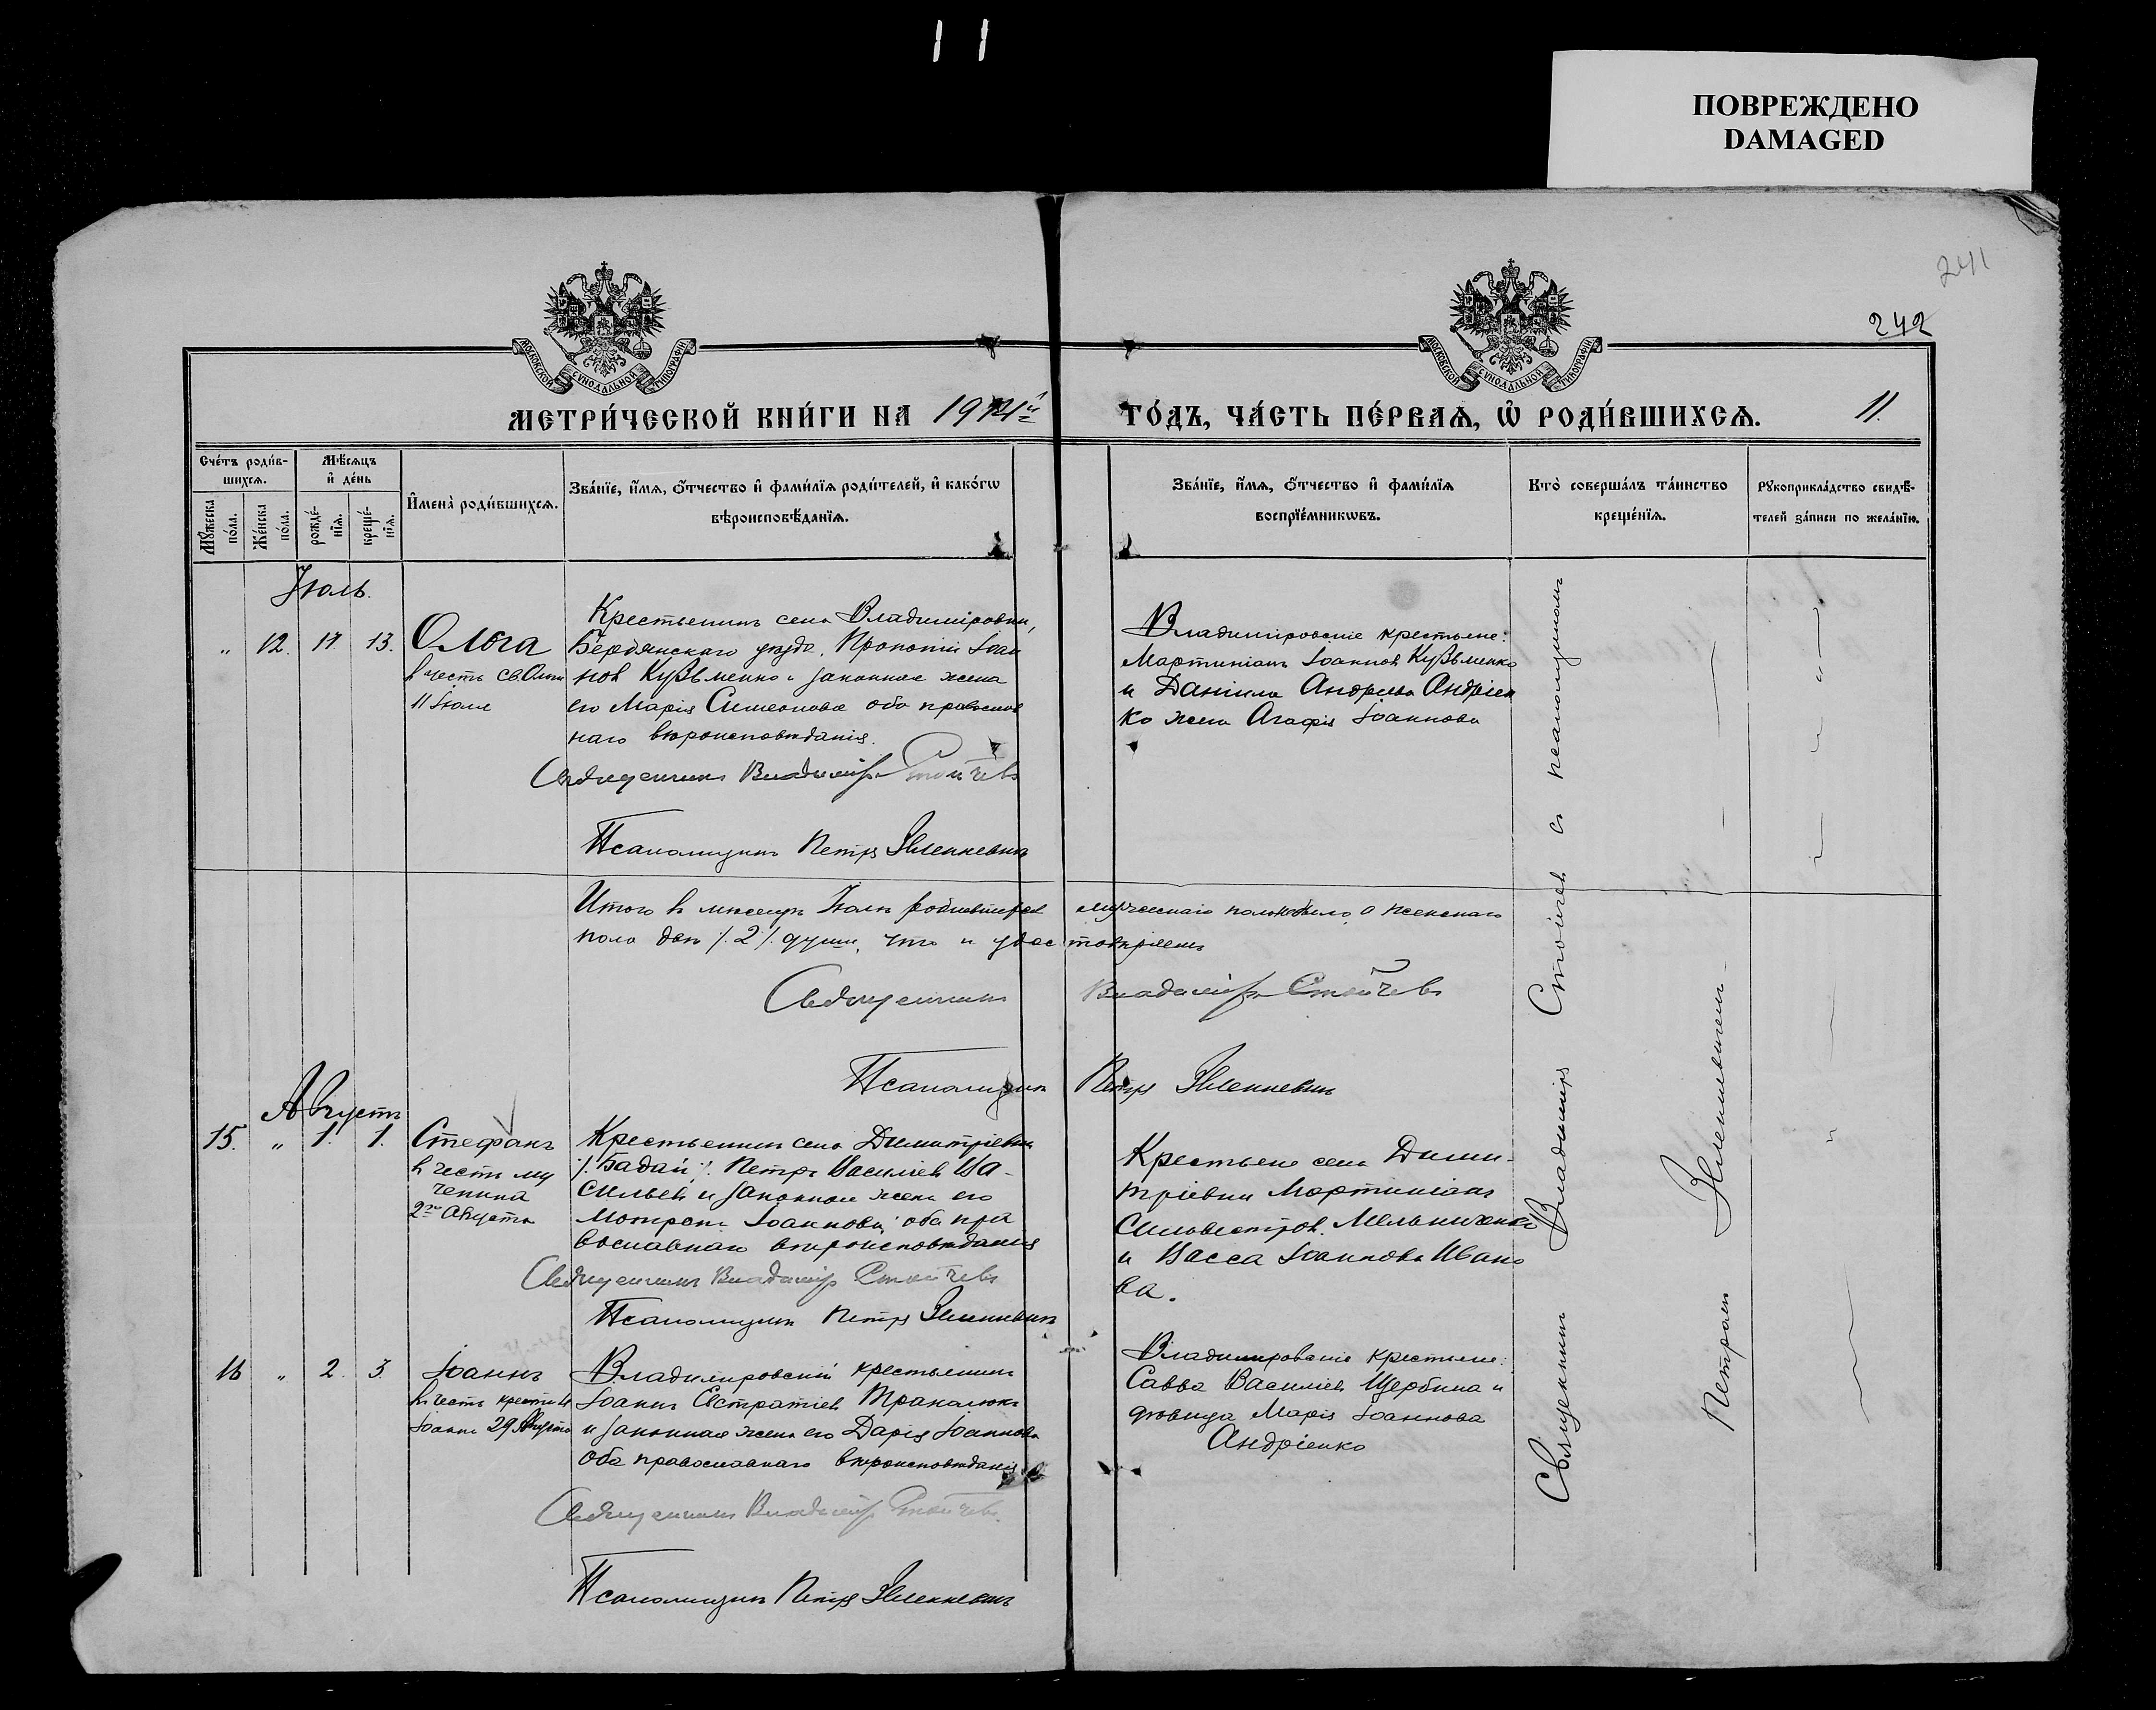 11
ПОВРЕЖДЕНО
DAMAGED
241
242
МОСКОВСКОЙ СѴНОДАЛЬНОЙ ТИПОГРАФІИ
МОСКОВСКОЙ СѴНОДАЛЬНОЙ ТИПОГРАФІИ
МЕТРИ́ЧЕСКОЙ КНИ́ГИ НА
ГО́ДЪ, ЧА́СТЬ ПЕ́РВАѦ, Ѿ РОДИ́ВШИХСѦ.
11.
Сче́тъ роди́в-
шихсѧ.
Мѣ́сѧцъ
и҆ де́нь
Мꙋ́жеска
по́ла.
Же́нска
по́ла.
рожде́-
нїѧ.
креще́-
нїѧ.
И҆мена̀ роди́вшихсѧ.
Зва́нїе, и҆́мѧ, ѻ҆́тчество и҆ фами́лїѧ роди́телей, и҆ како́гѡ
вѣроисповѣ́данїѧ.
Зва́нїе, и҆́мѧ, ѻ҆́тчество и҆ фами́лїѧ
воспрїе́мникѡвъ.
Кто̀ соверша́лъ та́инство
креще́нїѧ.
Рꙋкоприкла́дство свидѣ́-
телей за́писи по жела́нїю.
Іюль.
" 12. 11 13.
Ольга
въ честь св. Ольги
11 Іюля
Крестьянинъ села Владиміровки,
Бердянскаго уѣзда, Прокопій Іоан
новъ Кузьменко и законная жена
его Марія Симеонова оба православ
наго вѣроисповѣданія.
Священникъ Владиміръ Стойчевъ
Псаломщикъ Петръ
Владимировскіе крестьяне:
Мартиніанъ Іоанновъ Кузьменко
и Даніила Андреева Андріен
ко жена Агафія Іоаннова
Итого въ мѣсяцѣ Іюлѣ родившихся мужескаго пола было, а женскаго
пола двѣ /. 2 /. души, что и удостовѣряемъ
Священникъ Владиміръ Стойчевъ
Псаломщикъ Петръ
Августъ
15. " 1. 1.
Стефанъ
въ честь му
ченика
2го Августа
Крестьянинъ села Димитріевки
/. Бадай /. Петръ Василіевъ Ва-
сильевъ и законная жена его
Матрона Іоаннова оба пра
вославнаго вѣроисповѣданія
Священникъ Владиміръ Стойчевъ
Псаломщикъ Петръ
Крестьяне села Дими-
тріевки Мартиніанъ
Сильвестровъ Мельниченко
и Васса Іоаннова Ивано
ва.
16 " 2. 3.
Іоаннъ
въ честь крестителя
Іоанна 29 Августа
Владимировскій крестьянинъ
Іоаннъ Евстратіевъ Тракалюкъ
и законная жена его Дарія Іоаннова
Оба православнаго вѣроисповѣданія
Священникъ Владиміръ Стойчевъ
Псаломщикъ Петръ
Владимировскіе крестьяне:
Савва Василіевъ Щербина и
дѣвица Марія Іоаннова
Андріенко
Священникъ Владиміръ Стойчевъ съ псаломщикомъ
Петромъ